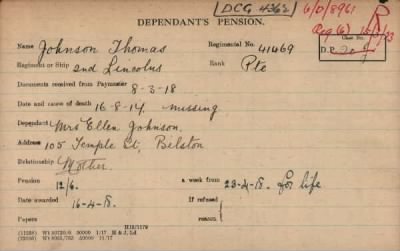 DCG 4362
6/D/8961
DEPENDANT'S PENSION.
Name Johnson Thomas Regimental No. 41469
Regiment or Ship 2nd Lincolns Rank Pte
Documents received from Paymaster 8-3-18
Date and cause of death 16-8-17 missing
Dependant Mrs Ellen Johnson
Address 105 Temple St, Bilston
Relationship Mother
Pension 12/6 a week from 23-4-18. for life
Date awarded 16-4-18. If refused
Papers reason
H18/1179